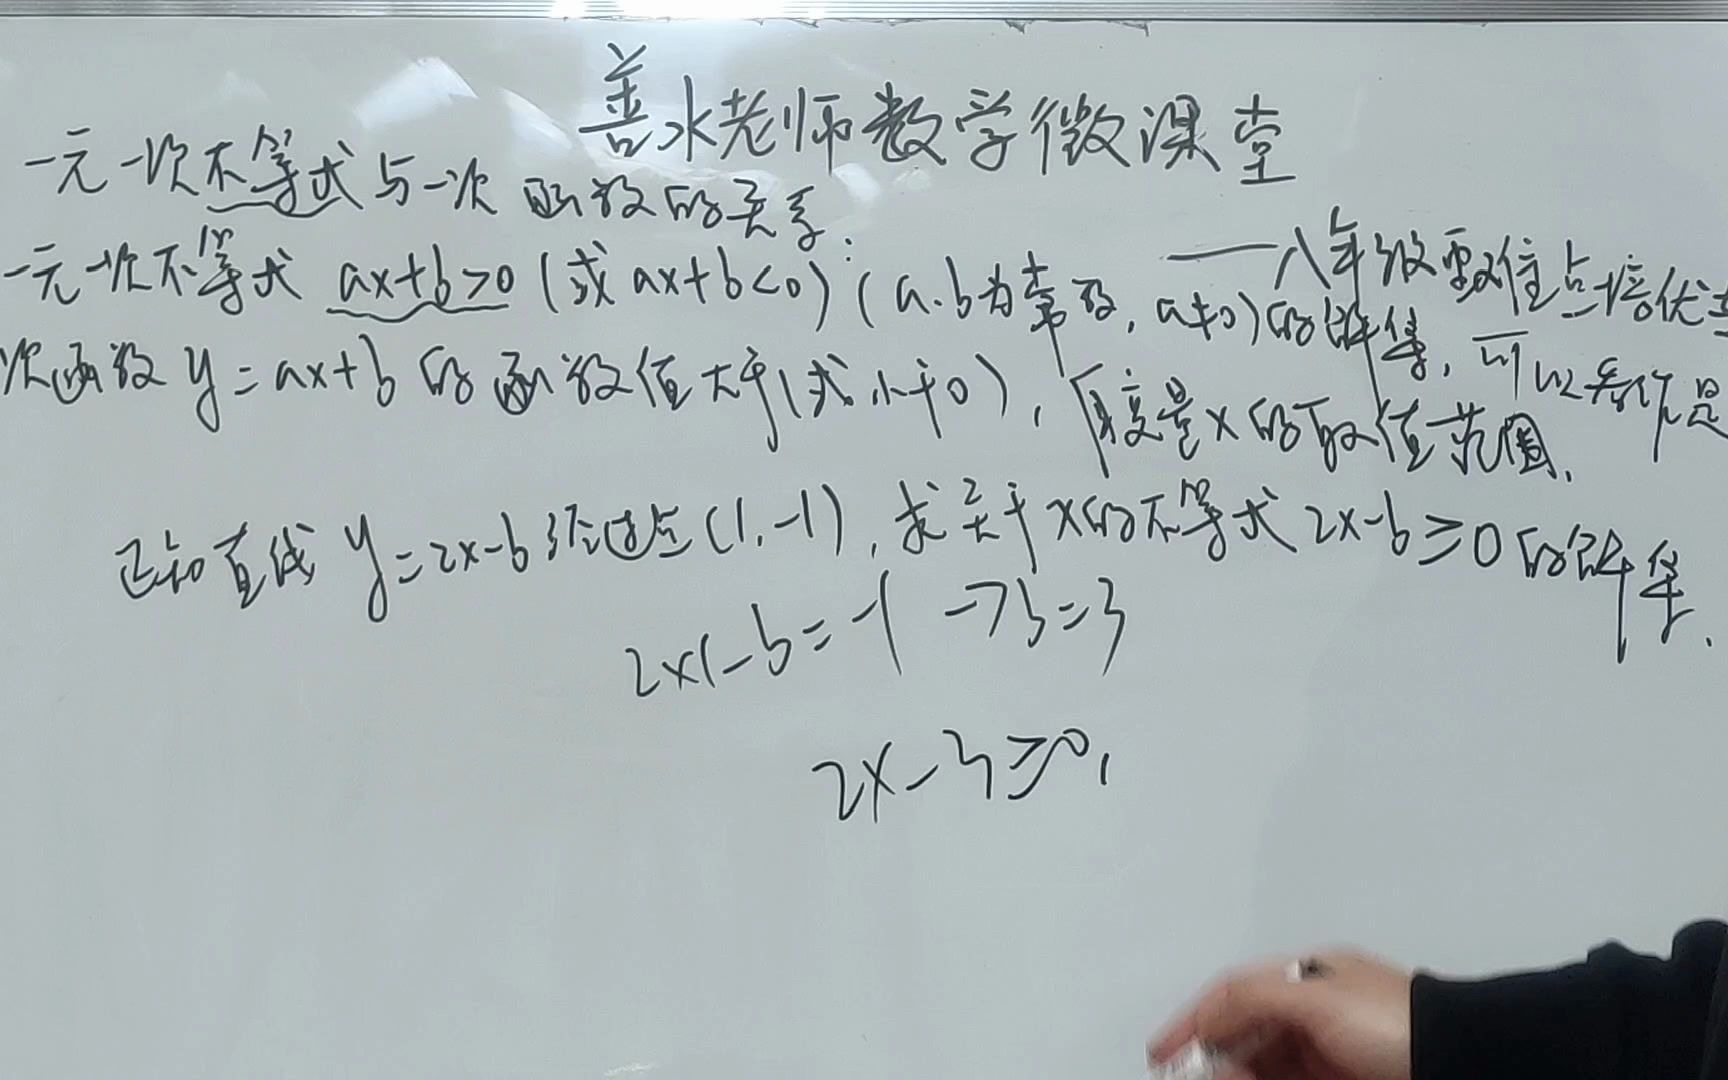 善水老师数学微课堂
一元一次不等式与一次函数的关系:
——八年级重难点培优
一元一次不等式 ax+b>0 (或 ax+b<0) (a.b为常数, a≠0)的解集, 可以看作是
次函数 y=ax+b 的函数值大于(或小于0), 时x的取值范围.
已知直线 y=2x-b 经过点(1,-1), 求关于x的不等式 2x-b≥0的解集.
2×1-b=-1 → b=3
2x-3≥0,